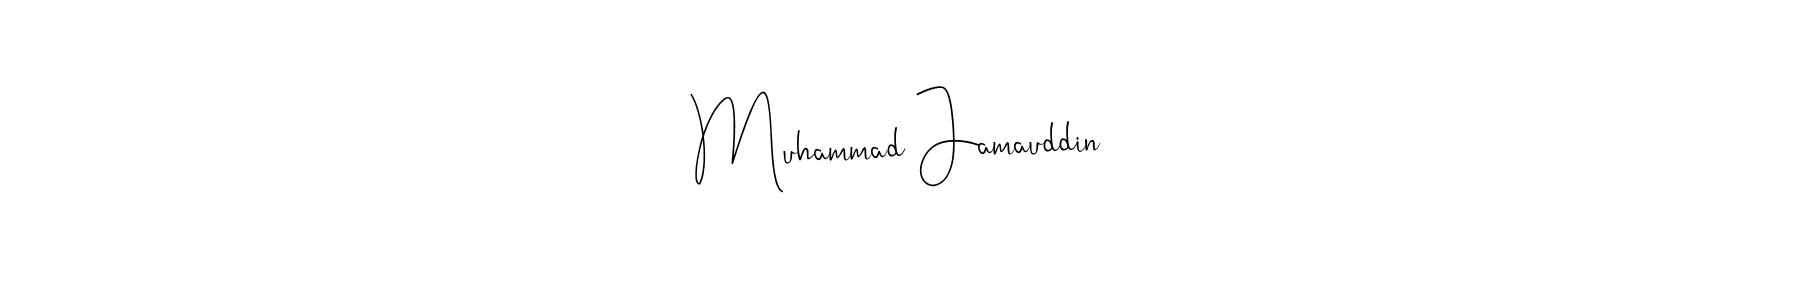 Muhammad Jamauddin